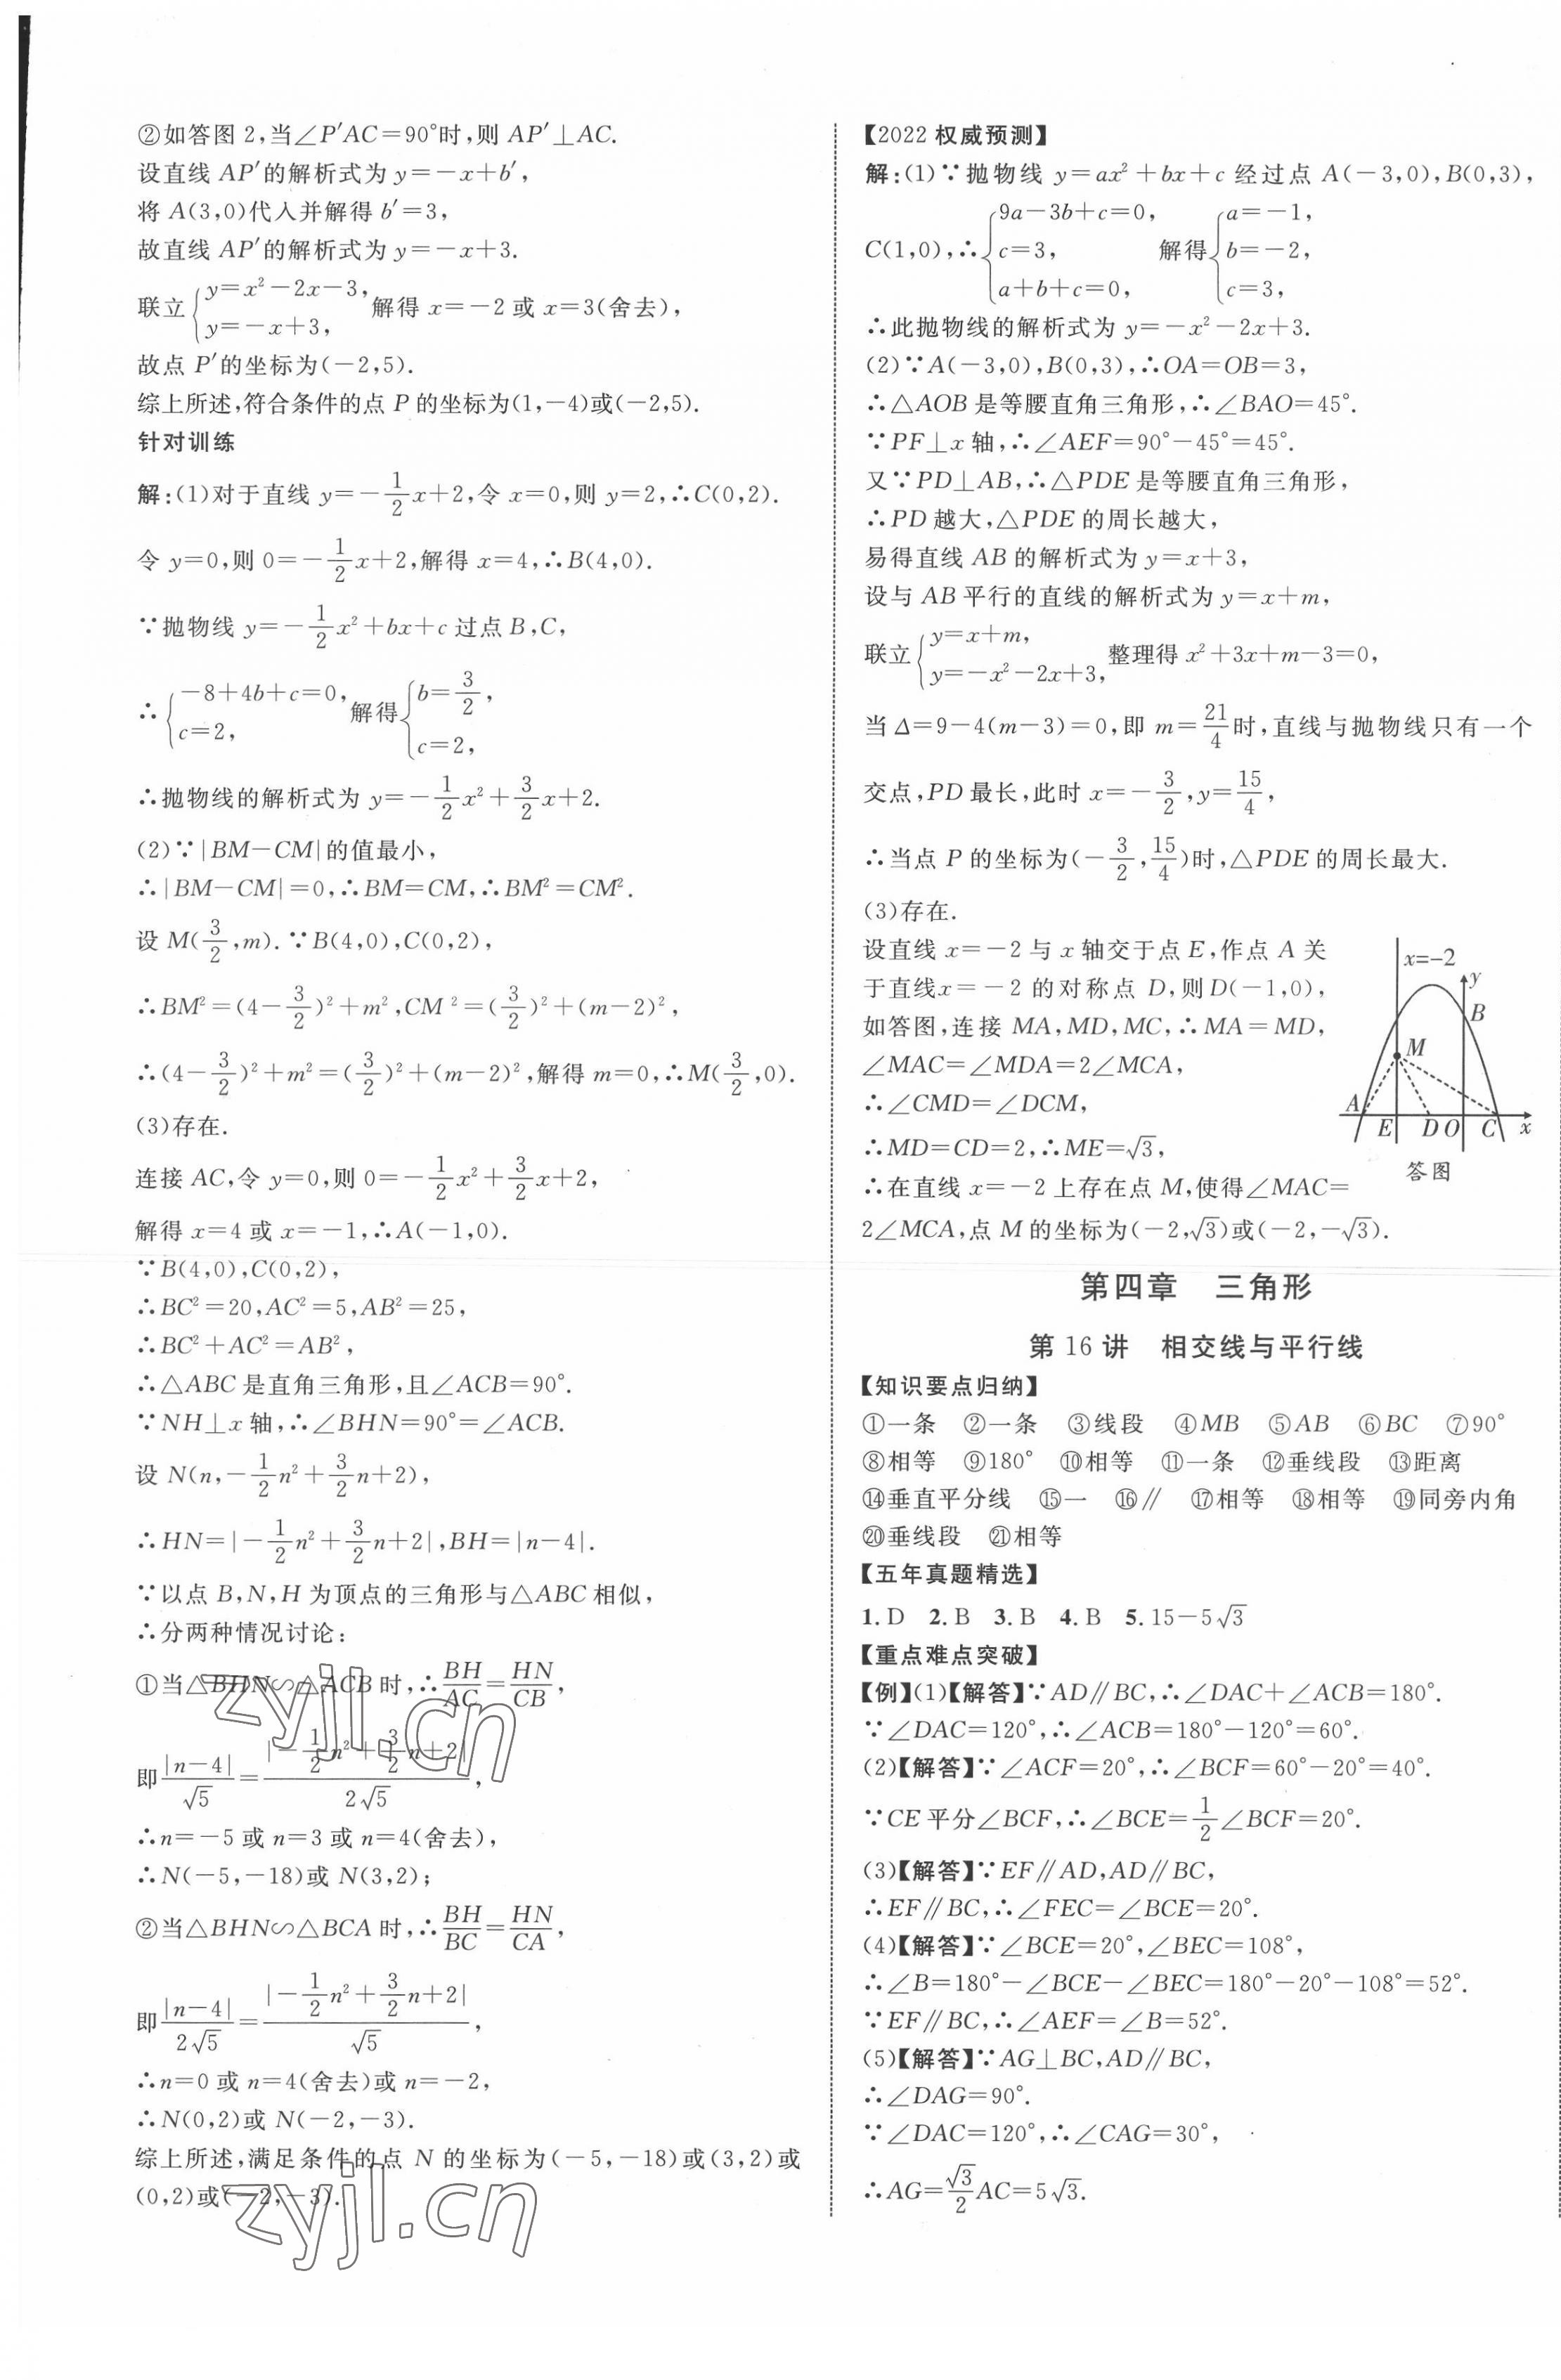 ②如答图 2,当∠P′AC=90°时,则 AP′⊥AC.
设直线 AP′的解析式为 y=-x+b′,
将 A(3,0)代入并解得 b′=3,
故直线 AP′的解析式为 y=-x+3.
联立{y=x²-2x-3, y=-x+3, 解得 x=-2 或 x=3(舍去),
故点 P′的坐标为(-2,5).
综上所述,符合条件的点 P 的坐标为(1,-4)或(-2,5).
针对训练
解:(1)对于直线 y=-1/2x+2,令 x=0,则 y=2,∴C(0,2).
令 y=0,则 0=-1/2x+2,解得 x=4,∴B(4,0).
∵抛物线 y=-1/2x²+bx+c 过点 B,C,
∴{-8+4b+c=0, c=2, 解得{b=3/2, c=2,
∴抛物线的解析式为 y=-1/2x²+3/2x+2.
(2)∵|BM-CM|的值最小,
∴|BM-CM|=0,∴BM=CM,∴BM²=CM².
设 M(3/2,m).∵B(4,0),C(0,2),
∴BM²=(4-3/2)²+m²,CM²=(3/2)²+(m-2)²,
∴(4-3/2)²+m²=(3/2)²+(m-2)²,解得 m=0,∴M(3/2,0).
(3)存在.
连接 AC,令 y=0,则 0=-1/2x²+3/2x+2,
解得 x=4 或 x=-1,∴A(-1,0).
∵B(4,0),C(0,2),
∴BC²=20,AC²=5,AB²=25,
∴BC²+AC²=AB²,
∴△ABC 是直角三角形,且∠ACB=90°.
∵NH⊥x 轴,∴∠BHN=90°=∠ACB.
设 N(n,-1/2n²+3/2n+2),
∴HN=|-1/2n²+3/2n+2|,BH=|n-4|.
∵以点 B,N,H 为顶点的三角形与△ABC 相似,
∴分两种情况讨论:
①当△BHN∽△ACB 时,∴BH/AC=HN/CB,
即|n-4|/√5=|-1/2n²+3/2n+2|/2√5,
∴n=-5 或 n=3 或 n=4(舍去),
∴N(-5,-18)或 N(3,2);
②当△BHN∽△BCA 时,∴BH/BC=HN/CA,
即|n-4|/2√5=|-1/2n²+3/2n+2|/√5,
∴n=0 或 n=4(舍去)或 n=-2,
∴N(0,2)或 N(-2,-3).
综上所述,满足条件的点 N 的坐标为(-5,-18)或(3,2)或
(0,2)或(-2,-3).
zyjl.cn
zyjl.cn
【2022 权威预测】
解:(1)∵抛物线 y=ax²+bx+c 经过点 A(-3,0),B(0,3),
C(1,0),∴{9a-3b+c=0, c=3, a+b+c=0, 解得{a=-1, b=-2, c=3,
∴此抛物线的解析式为 y=-x²-2x+3.
(2)∵A(-3,0),B(0,3),∴OA=OB=3,
∴△AOB 是等腰直角三角形,∴∠BAO=45°.
∵PF⊥x 轴,∴∠AEF=90°-45°=45°.
又∵PD⊥AB,∴△PDE 是等腰直角三角形,
∴PD 越大,△PDE 的周长越大,
易得直线 AB 的解析式为 y=x+3,
设与 AB 平行的直线的解析式为 y=x+m,
联立{y=x+m, y=-x²-2x+3, 整理得 x²+3x+m-3=0,
当 Δ=9-4(m-3)=0,即 m=21/4时,直线与抛物线只有一个
交点,PD 最长,此时 x=-3/2,y=15/4,
∴当点 P 的坐标为(-3/2,15/4)时,△PDE 的周长最大.
(3)存在.
设直线 x=-2 与 x 轴交于点 E,作点 A 关
于直线x=-2 的对称点 D,则D(-1,0),
如答图,连接 MA,MD,MC,∴MA=MD,
∠MAC=∠MDA=2∠MCA,
∴∠CMD=∠DCM,
∴MD=CD=2,∴ME=√3,
∴在直线 x=-2 上存在点 M,使得∠MAC=
2∠MCA,点 M 的坐标为(-2,√3)或(-2,-√3).
x=-2
y
B
M
A
E D O C x
答图
第四章 三角形
第 16 讲 相交线与平行线
【知识要点归纳】
①一条 ②一条 ③线段 ④MB ⑤AB ⑥BC ⑦90°
⑧相等 ⑨180° ⑩相等 ⑪一条 ⑫垂线段 ⑬距离
⑭垂直平分线 ⑮一 ⑯∥ ⑰相等 ⑱相等 ⑲同旁内角
⑳垂线段 ㉑相等
【五年真题精选】
1.D 2.B 3.B 4.B 5.15-5√3
【重点难点突破】
【例】(1)【解答】∵AD∥BC,∴∠DAC+∠ACB=180°.
∵∠DAC=120°,∴∠ACB=180°-120°=60°.
(2)【解答】∵∠ACF=20°,∴∠BCF=60°-20°=40°.
∵CE 平分∠BCF,∴∠BCE=1/2∠BCF=20°.
(3)【解答】∵EF∥AD,AD∥BC,
∴EF∥BC,∴∠FEC=∠BCE=20°.
(4)【解答】∵∠BCE=20°,∠BEC=108°,
∴∠B=180°-∠BCE-∠BEC=180°-20°-108°=52°.
∵EF∥BC,∴∠AEF=∠B=52°.
(5)【解答】∵AG⊥BC,AD∥BC,
∴∠DAG=90°.
∵∠DAC=120°,∴∠CAG=30°,
∴AG=√3/2AC=5√3.